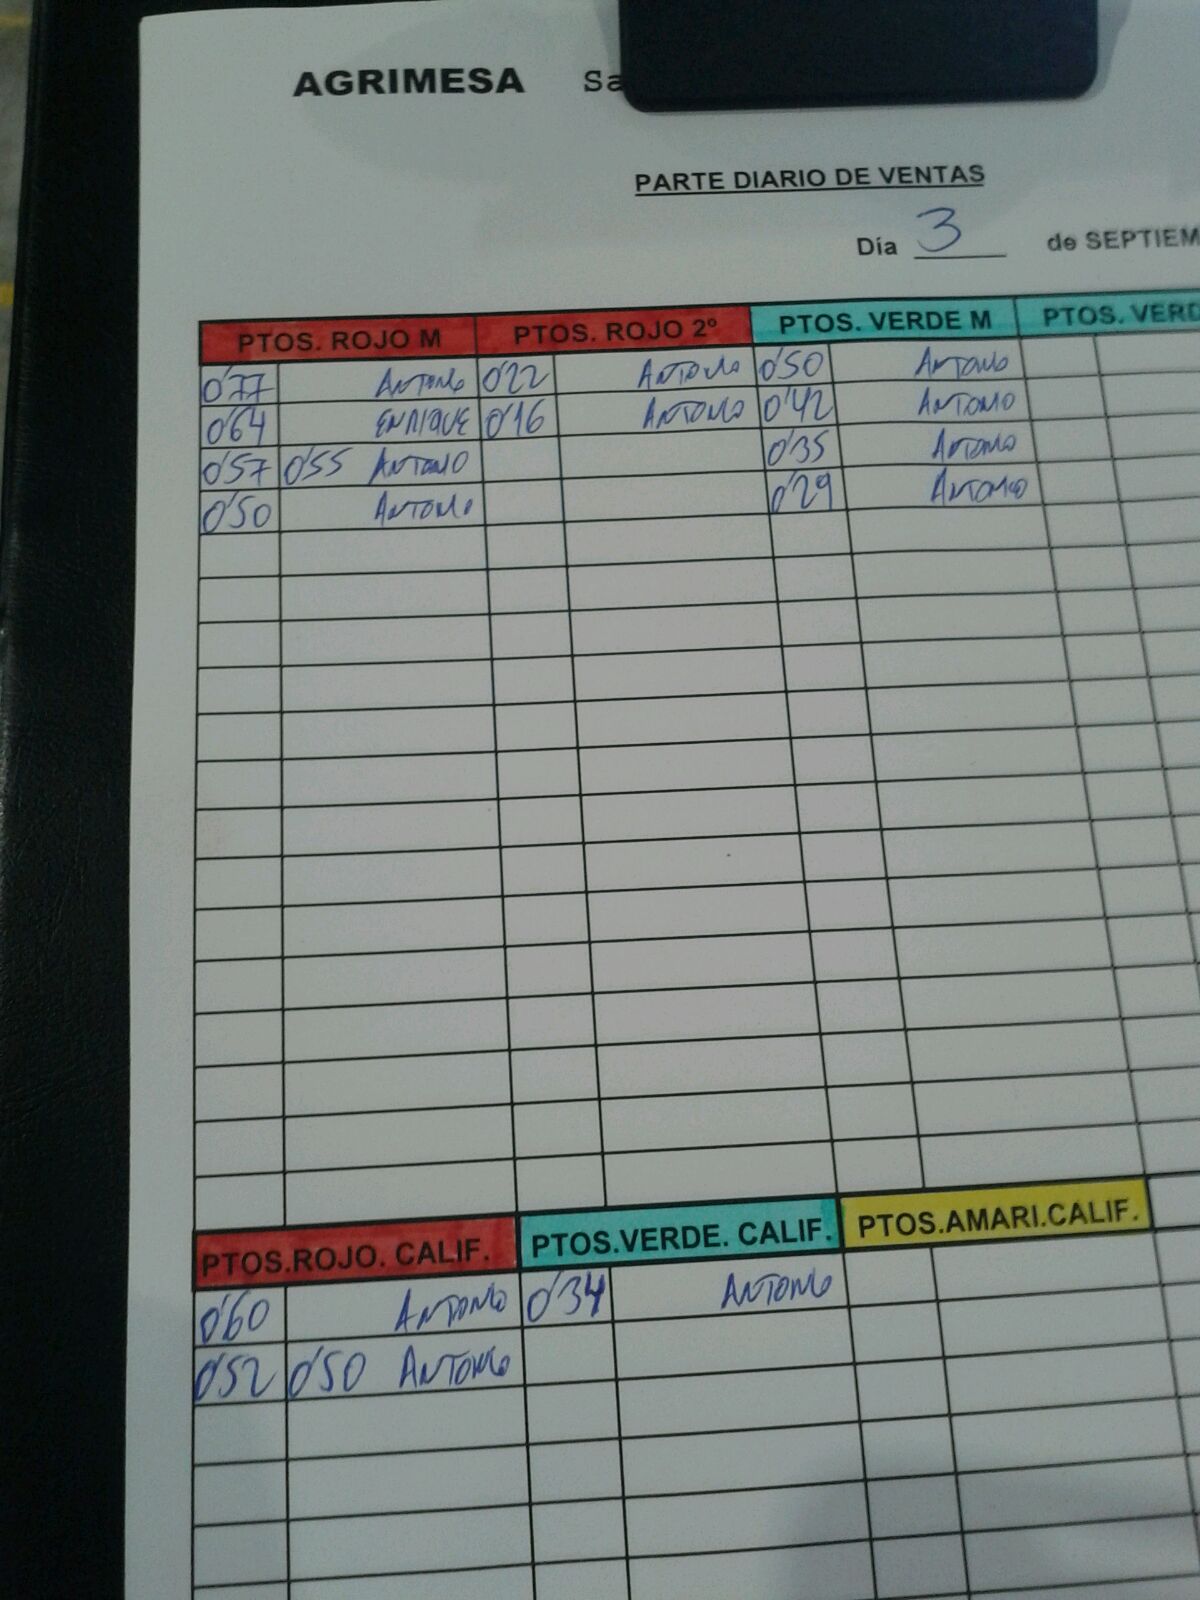 AGRIMESA Sa
PARTE DIARIO DE VENTAS
Día 3 de SEPTIEM
PTOS. ROJO M PTOS. ROJO 2º PTOS. VERDE M PTOS. VERD
0'77 ANTONIO 0'22 ANTONIO 0'50 ANTONIO
0'64 ENRIQUE 0'16 ANTONIO 0'42 ANTONIO
0'57 0'55 ANTONIO 0'35 ANTONIO
0'50 ANTONIO 0'29 ANTONIO
PTOS.ROJO. CALIF. PTOS.VERDE. CALIF. PTOS.AMARI.CALIF.
0'60 ANTONIO 0'34 ANTONIO
0'52 0'50 ANTONIO